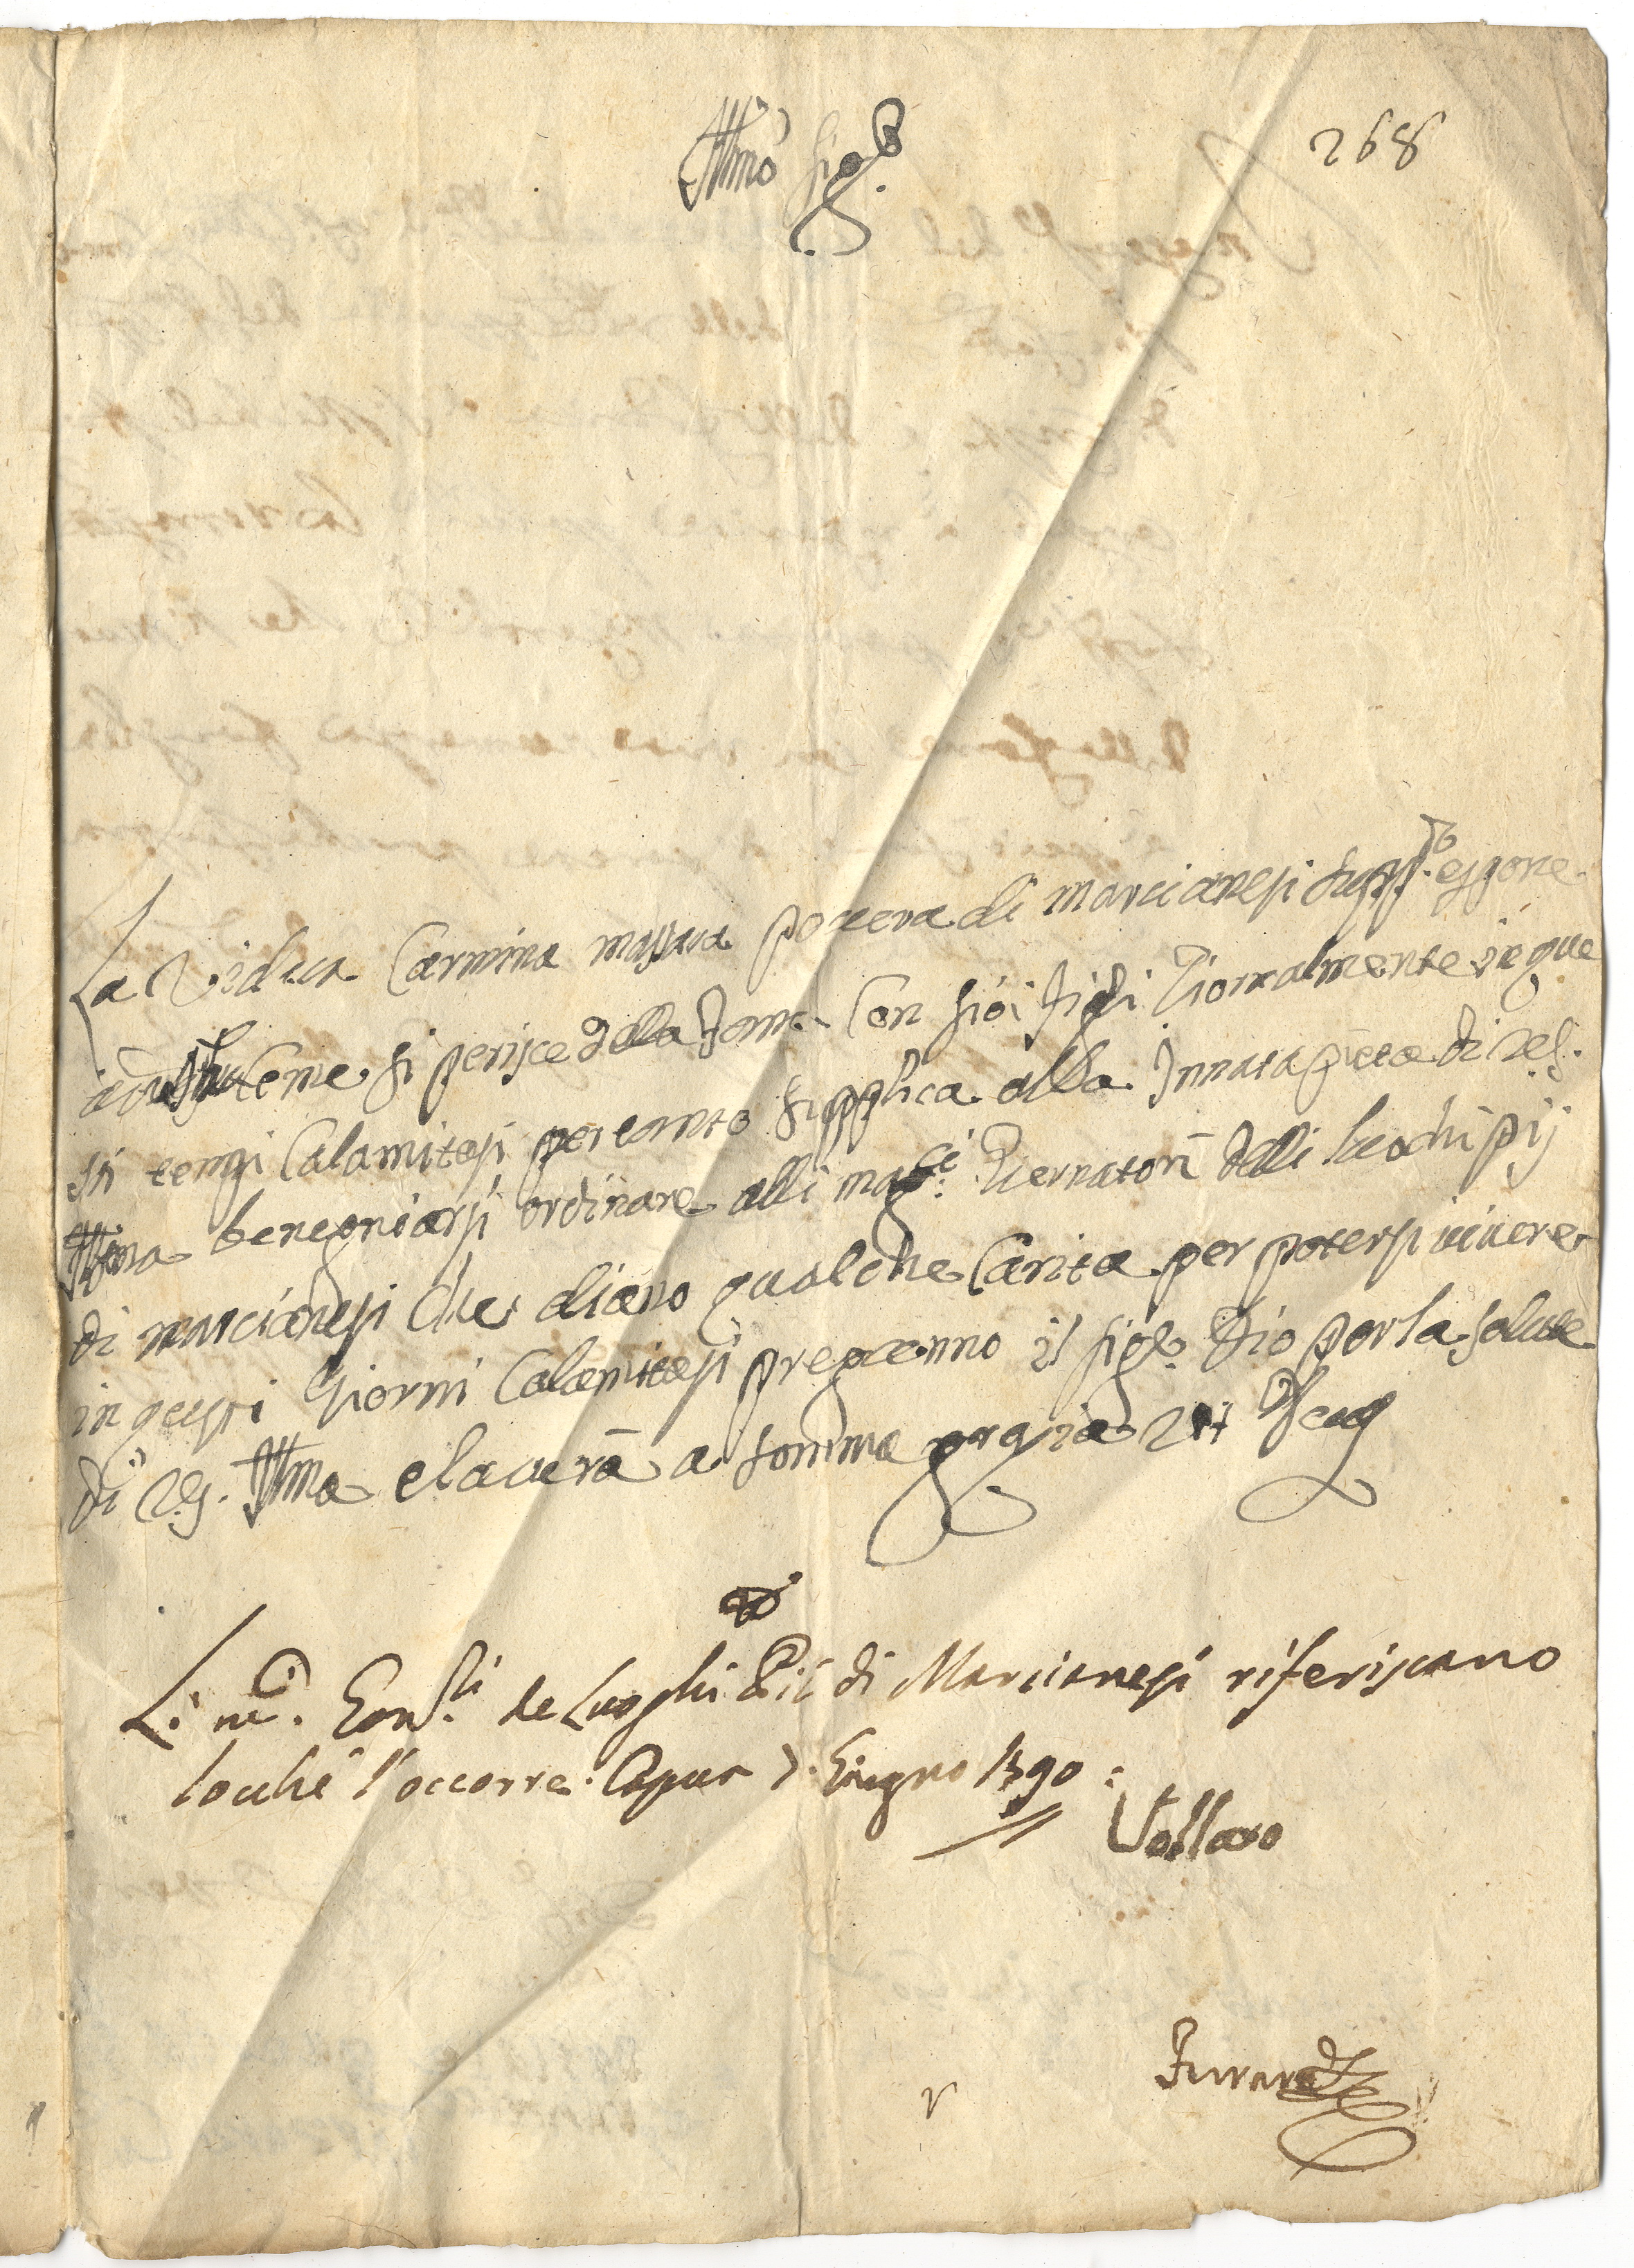 268
Ill.mo Sig.re
La Vidua Carmina massara povera di marcianesi supp.te espone
Ill.ma come si perisce della fame con suoi figli Giornalmente in que
sti tempi Calamitosi pertanto supplica alla Innata pietà di V.S.
Ill.ma benegniarsi ordinare alli mag.ci Guernatori delli luochi pij
di marcianesi che diano qualche Carità per potersi vivere
in questi Giorni Calamitosi pregranno il Sig.e Dio per la salute
di V.S. Ill.ma e lavera a somma grazia ut Deus
Li m.ci Gov.ri de Luoghi Pii di Marcianesi riferiscano
locché l'occorre. Capua 7. Giugno 1790:
Vollaro
Ferrara